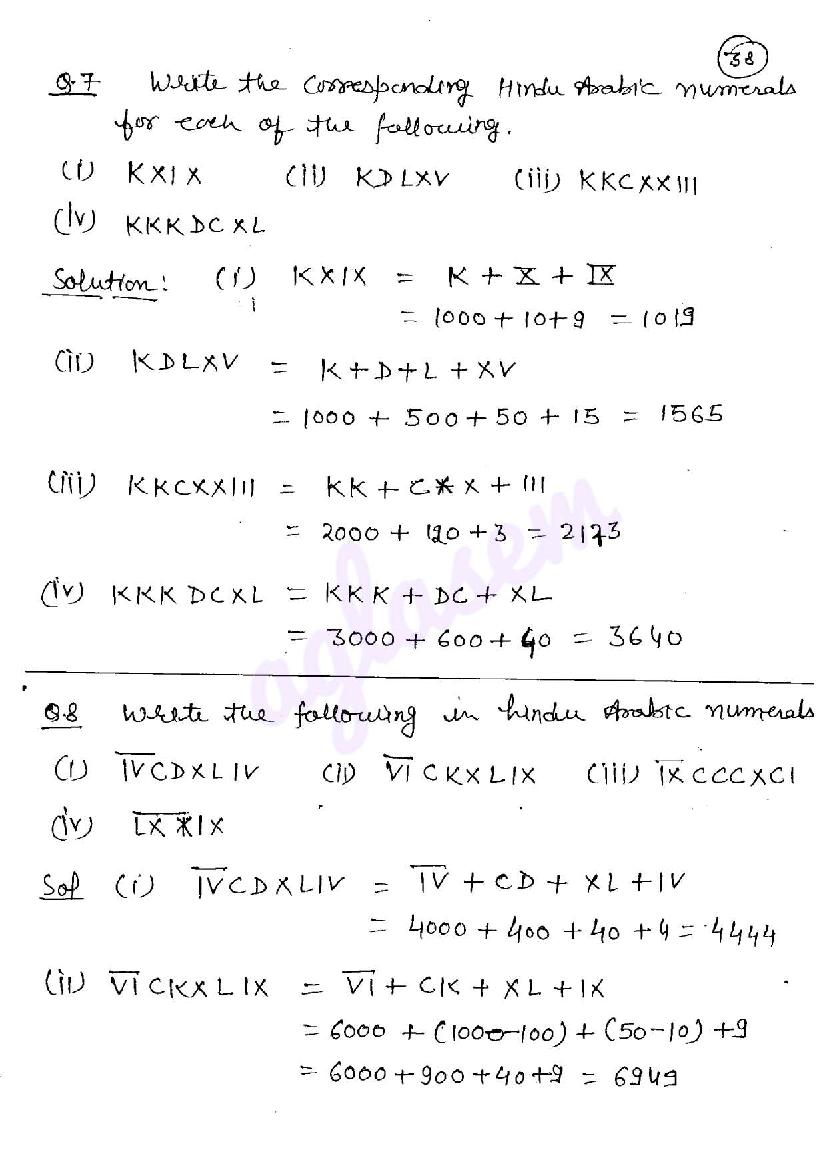 38
Q.7 Write the corresponding Hindu Arabic numerals
for each of the following.
(i) KXIX (ii) KDLXV (iii) KKCXXIII
(iv) KKKDCXL
Solution: (i) KXIX = K + X + IX
= 1000 + 10 + 9 = 1019
(ii) KDLXV = K + D + L + XV
= 1000 + 500 + 50 + 15 = 1565
(iii) KKCXXIII = KK + CXX + III
= 2000 + 120 + 3 = 2123
(iv) KKKDCXL = KKK + DC + XL
= 3000 + 600 + 40 = 3640
Q.8 Write the following in hindu Arabic numerals
(i) I̅V̅CDXLIV (ii) V̅I̅CKXLIX (iii) I̅X̅CCCXCI
(iv) L̅X̅X̅IX
Sol (i) I̅V̅CDXLIV = I̅V̅ + CD + XL + IV
= 4000 + 400 + 40 + 4 = 4444
(ii) V̅I̅CKXLIX = V̅I̅ + CK + XL + IX
= 6000 + (1000-100) + (50-10) + 9
= 6000 + 900 + 40 + 9 = 6949
aglasem